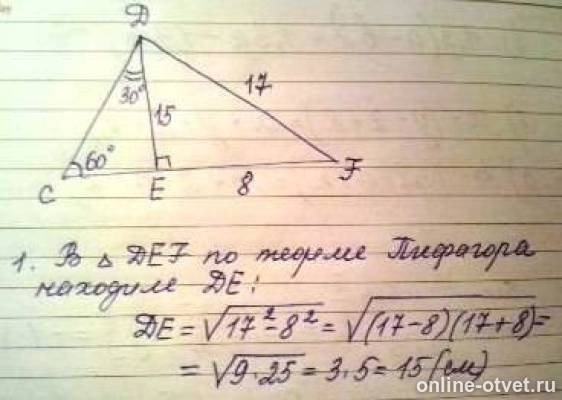 D
30°
15
17
60°
C
E
8
F
1. В △ DEF по теореме Пифагора
находиле DE:
DE = √17² - 8² = √(17-8)(17+8) =
= √9·25 = 3·5 = 15 (см)
online-otvet.ru